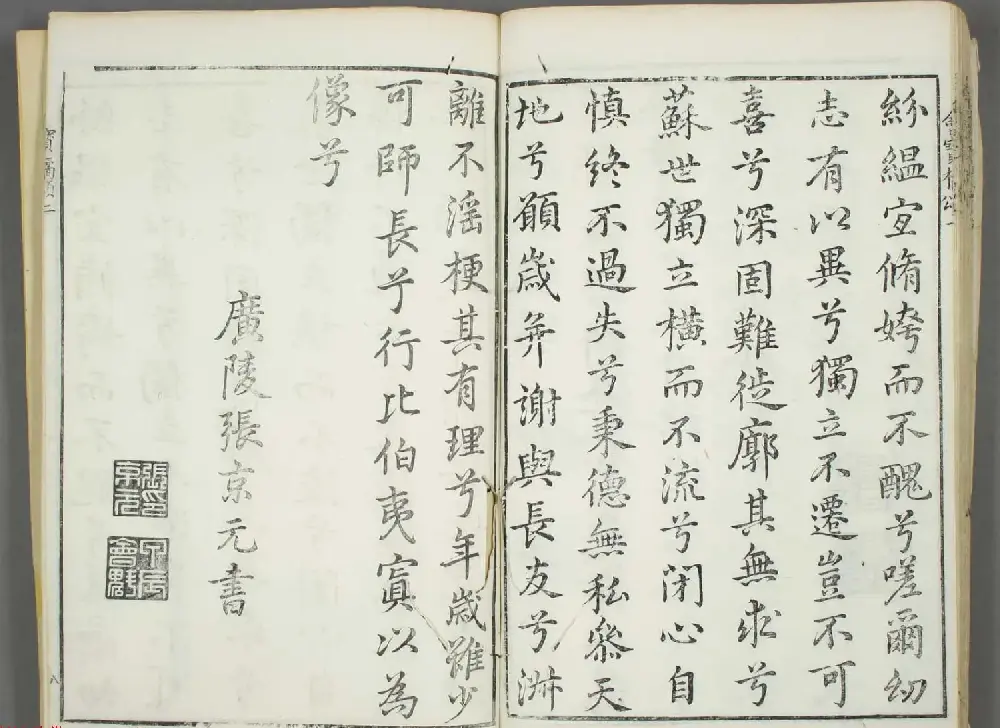 紛縕宜脩姱而不醜兮嗟爾幼
志有以異兮獨立不遷豈不可
喜兮深固難徙廓其無求兮
蘇世獨立橫而不流兮閉心自
慎終不過失兮秉德無私參天
地兮願歲并謝與長友兮淑
離不淫梗其有理兮年歲雖少
可師長兮行比伯夷寘以為
像兮
廣陵張京元書
張印京元